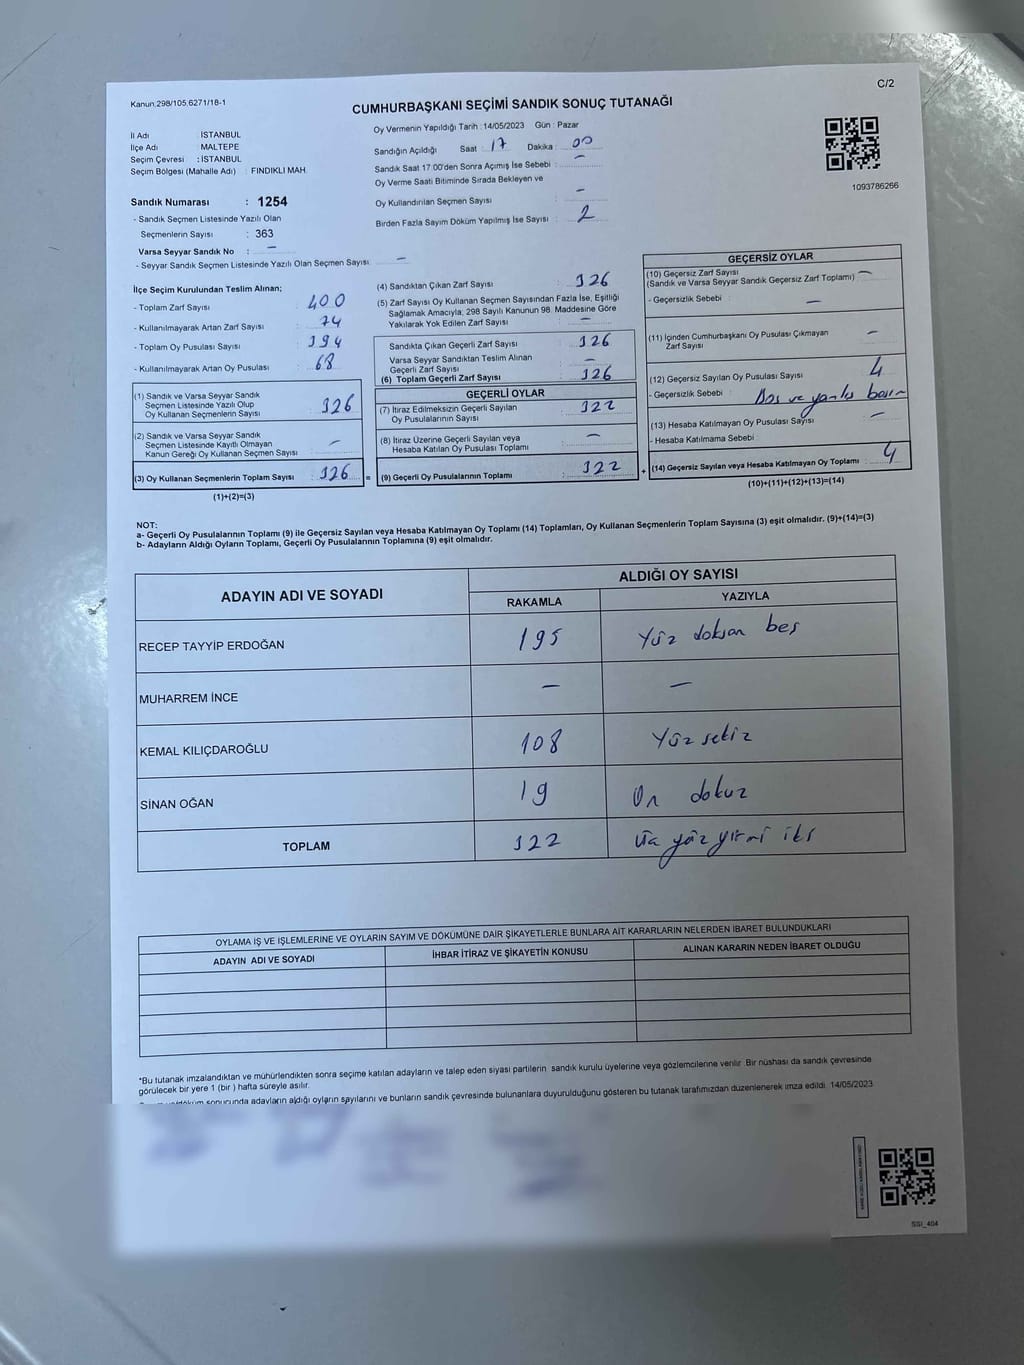 C/2
Kanun,298/105,6271/18-1
CUMHURBAŞKANI SEÇİMİ SANDIK SONUÇ TUTANAĞI
İl Adı : İSTANBUL
İlçe Adı : MALTEPE
Seçim Çevresi : İSTANBUL
Seçim Bölgesi (Mahalle Adı) : FINDIKLI MAH.
Sandık Numarası : 1254
- Sandık Seçmen Listesinde Yazılı Olan
Seçmenlerin Sayısı : 363
Varsa Seyyar Sandık No : –
- Seyyar Sandık Seçmen Listesinde Yazılı Olan Seçmen Sayısı –
Oy Vermenin Yapıldığı Tarih : 14/05/2023 Gün : Pazar
Sandığın Açıldığı Saat : 17 Dakika : 00
Sandık Saat 17:00'den Sonra Açımış İse Sebebi : –
Oy Verme Saati Bitiminde Sırada Bekleyen ve
Oy Kullandırılan Seçmen Sayısı : –
Birden Fazla Sayım Döküm Yapılmış İse Sayısı : 2
1093786266
İlçe Seçim Kurulundan Teslim Alınan;
- Toplam Zarf Sayısı : 400
- Kullanılmayarak Artan Zarf Sayısı : 74
- Toplam Oy Pusulası Sayısı : 394
- Kullanılmayarak Artan Oy Pusulası : 68
(1) Sandık ve Varsa Seyyar Sandık
Seçmen Listesinde Yazılı Olup
Oy Kullanan Seçmenlerin Sayısı : 326
(2) Sandık ve Varsa Seyyar Sandık
Seçmen Listesinde Kayıtlı Olmayan
Kanun Gereği Oy Kullanan Seçmen Sayısı : –
(3) Oy Kullanan Seçmenlerin Toplam Sayısı : 326
(1)+(2)=(3)
(4) Sandıktan Çıkan Zarf Sayısı : 326
(5) Zarf Sayısı Oy Kullanan Seçmen Sayısından Fazla İse, Eşitliği
Sağlamak Amacıyla; 298 Sayılı Kanunun 98. Maddesine Göre
Yakılarak Yok Edilen Zarf Sayısı : –
Sandıkta Çıkan Geçerli Zarf Sayısı : 326
Varsa Seyyar Sandıktan Teslim Alınan
Geçerli Zarf Sayısı : –
(6) Toplam Geçerli Zarf Sayısı : 326
GEÇERLİ OYLAR
(7) İtiraz Edilmeksizin Geçerli Sayılan
Oy Pusulalarının Sayısı : 322
(8) İtiraz Üzerine Geçerli Sayılan veya
Hesaba Katılan Oy Pusulası Toplamı : –
= (9) Geçerli Oy Pusulalarının Toplamı : 322
GEÇERSİZ OYLAR
(10) Geçersiz Zarf Sayısı : –
(Sandık ve Varsa Seyyar Sandık Geçersiz Zarf Toplamı)
- Geçersizlik Sebebi : –
(11) İçinden Cumhurbaşkanı Oy Pusulası Çıkmayan
Zarf Sayısı : –
(12) Geçersiz Sayılan Oy Pusulası Sayısı : 4
- Geçersizlik Sebebi : Boş ve yanlış basım
(13) Hesaba Katılmayan Oy Pusulası Sayısı : –
- Hesaba Katılmama Sebebi :
+ (14) Geçersiz Sayılan veya Hesaba Katılmayan Oy Toplamı : 4
(10)+(11)+(12)+(13)=(14)
NOT:
a- Geçerli Oy Pusulalarının Toplamı (9) ile Geçersiz Sayılan veya Hesaba Katılmayan Oy Toplamı (14) Toplamları, Oy Kullanan Seçmenlerin Toplam Sayısına (3) eşit olmalıdır. (9)+(14)=(3)
b- Adayların Aldığı Oyların Toplamı, Geçerli Oy Pusulalarının Toplamına (9) eşit olmalıdır.
ADAYIN ADI VE SOYADI
ALDIĞI OY SAYISI
RAKAMLA YAZIYLA
RECEP TAYYİP ERDOĞAN 195 Yüz doksan beş
MUHARREM İNCE – –
KEMAL KILIÇDAROĞLU 108 Yüz sekiz
SİNAN OĞAN 19 On dokuz
TOPLAM 322 Üç yüz yirmi iki
OYLAMA İŞ VE İŞLEMLERİNE VE OYLARIN SAYIM VE DÖKÜMÜNE DAİR ŞİKAYETLERLE BUNLARA AİT KARARLARIN NELERDEN İBARET BULUNDUKLARI
ADAYIN ADI VE SOYADI İHBAR İTİRAZ VE ŞİKAYETİN KONUSU ALINAN KARARIN NEDEN İBARET OLDUĞU
*Bu tutanak imzalandıktan ve mühürlendikten sonra seçime katılan adayların ve talep eden siyasi partilerin sandık kurulu üyelerine veya gözlemcilerine verilir. Bir nüshası da sandık çevresinde
görülecek bir yere 1 (bir ) hafta süreyle asılır.
sonucunda adayların aldığı oyların sayılarını ve bunların sandık çevresinde bulunanlara duyurulduğunu gösteren bu tutanak tarafımızdan düzenlenerek imza edildi. 14/05/2023
SSI_404